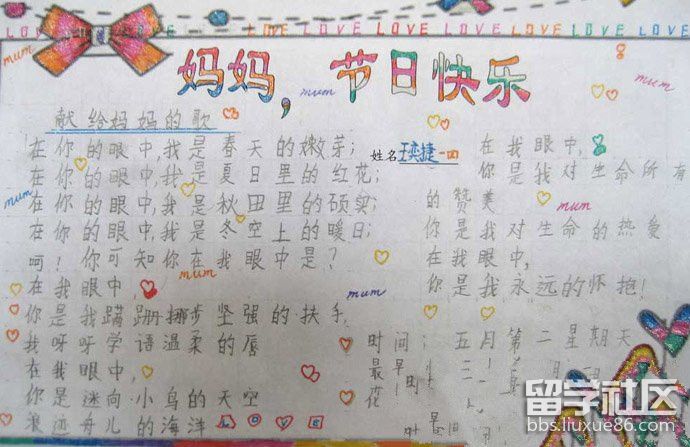 LOVE LOVE LOVE LOVE LOVE LOVE
妈妈，节日快乐
献给妈妈的歌
在你的眼中,我是春天的嫩芽；
在你的眼中,我是夏日里的红花；
在你的眼中,我是秋田里的硕实；
在你的眼中,我是冬空上的暖日；
呵！你可知你在我眼中是？
在我眼中，
你是我蹒跚挪步坚强的扶手，
我呀呀学语温柔的唇
在我眼中，
你是迷向小鸟的天空
浪迹舟儿的海洋
姓名 王奕捷 一四
在我眼中，
你是我对生命所有
的赞美
你是我对生命的热爱
在我眼中，
你是我永远的怀抱！
时间：五月第二星期天
最早
花！时
时
mum
mum
mum
mum
mum
mum
mum
LOVE
留学社区
bbs.liuxue86.com